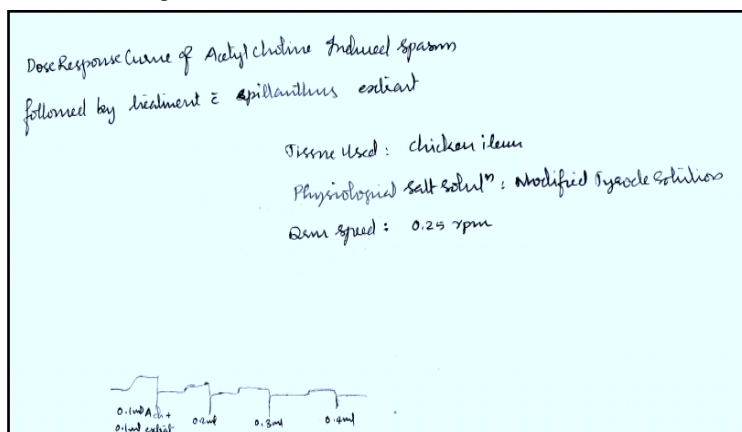 Dose Response Curve of Acetyl choline Induced spasm
followed by treatment c̄ spillanthus extract
Tissue Used : chicken ileum
Physiological salt solutⁿ : Modified Tyrode solution
Drum speed : 0.25 rpm
0.1ml Ach + 0.2ml 0.3ml 0.4ml
0.1ml extract